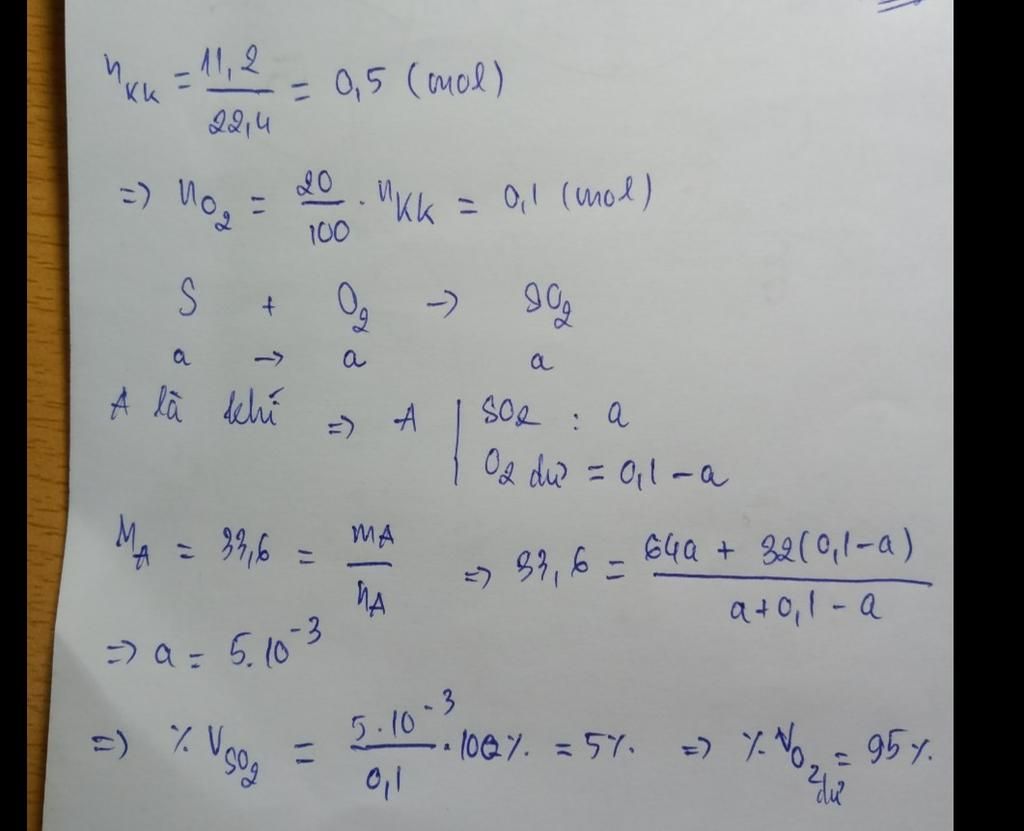 n_KK = 11,2 / 22,4 = 0,5 (mol)
=> n_O2 = 20/100 . n_KK = 0,1 (mol)
S + O2 -> SO2
a -> a a
A là khí => A | SO2 : a
O2 dư = 0,1 - a
M_A = 33,6 = mA / nA => 33,6 = 64a + 32(0,1-a) / a+0,1-a
=> a = 5.10^-3
=> % V_SO2 = 5.10^-3 / 0,1 . 100% = 5% => % V_O2 dư = 95%.